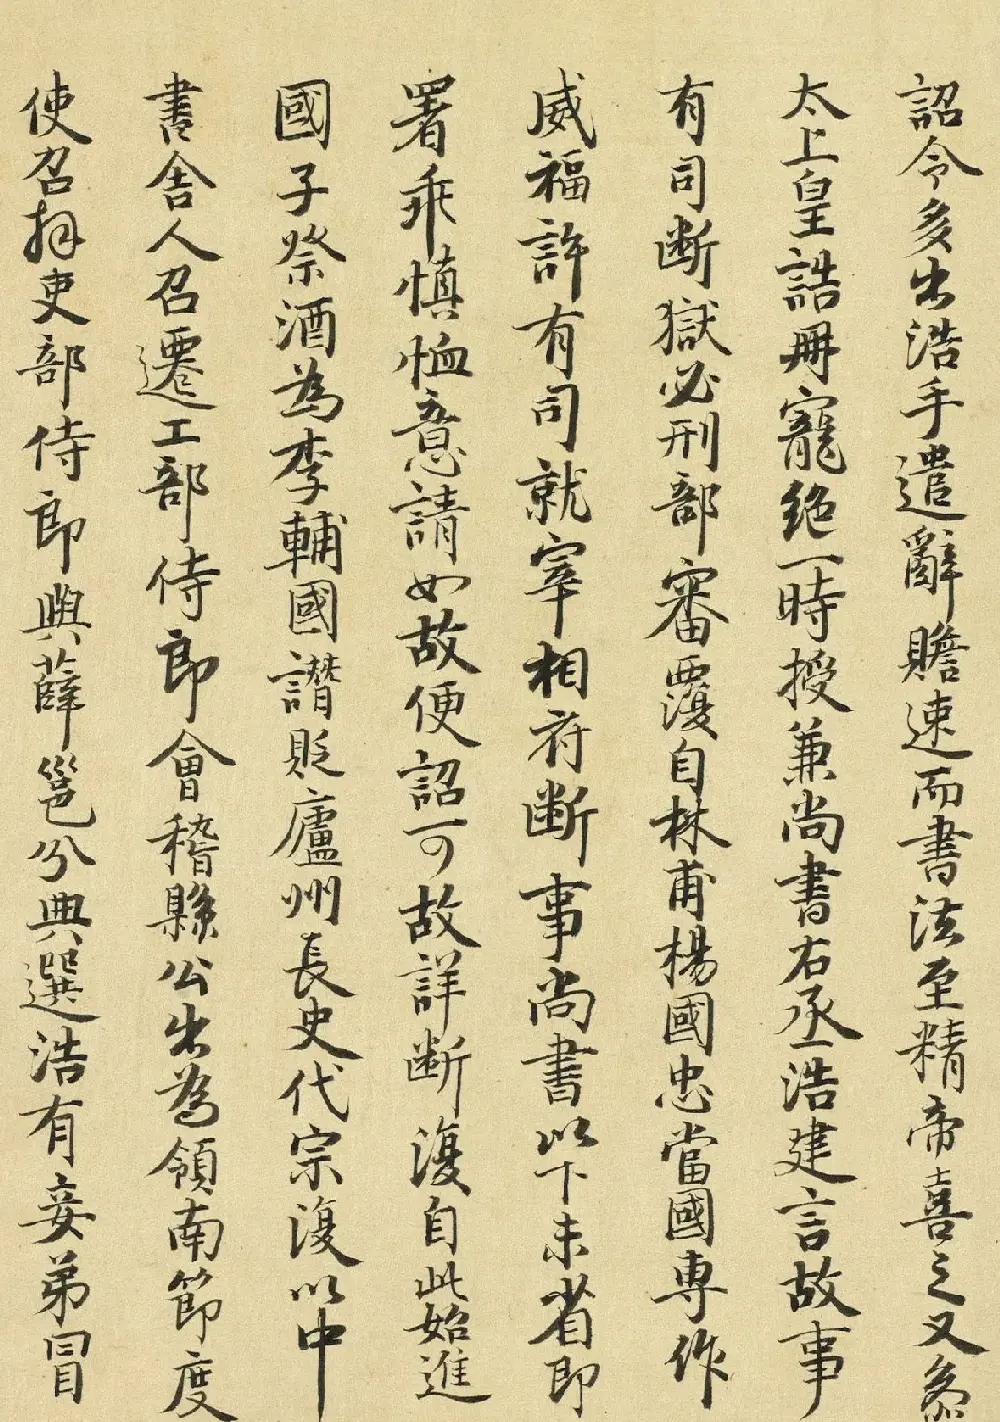 詔令多出浩手遣辭贍速而書法至精帝喜之又叅
太上皇誥冊寵絶一時授兼尚書右丞浩建言故事
有司断獄必刑部審覆自林甫楊國忠當國専作
威福許有司就宰相府断事尚書以下未省即
署乖慎恤意請如故便詔可故詳断復自此始進
國子祭酒為李輔國譛貶廬州長史代宗復以中
書舎人召遷工部侍郎會稽縣公出為領南節度
使召拜吏部侍郎與薛邕分典選浩有妾弟冒